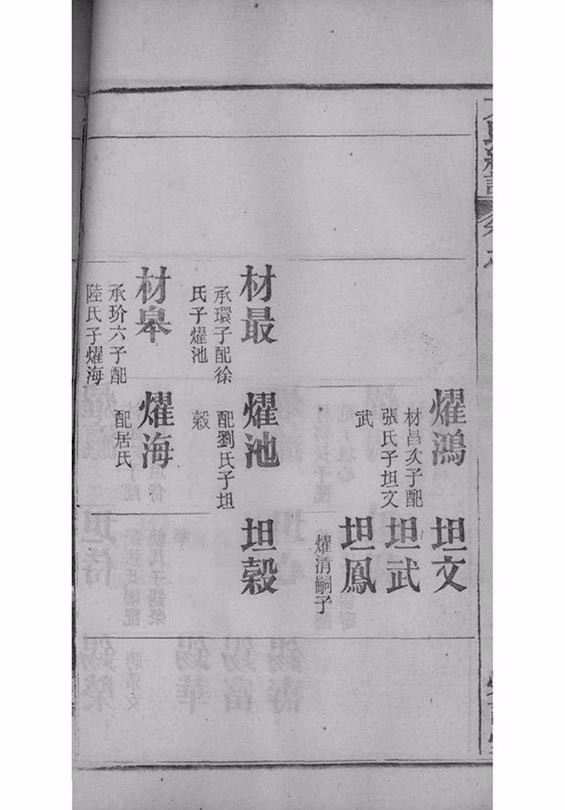 燿鴻
材昌次子配
張氏子坦文
武
坦文
坦武
坦鳳
燿清嗣子
材最
承環子配徐
氏子燿池
燿池
配劉氏子坦
穀
坦穀
材皋
承玠六子配
陸氏子燿海
燿海
配居氏